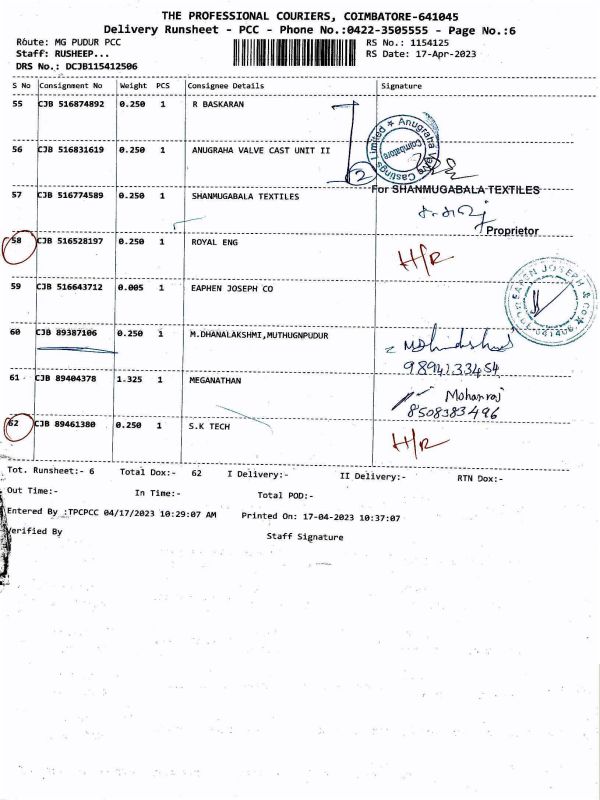 THE PROFESSIONAL COURIERS, COIMBATORE-641045
Delivery Runsheet - PCC - Phone No.:0422-3505555 - Page No.:6
Route: MG PUDUR PCC RS No.: 1154125
Staff: RUSHEEP... RS Date: 17-Apr-2023
DRS No.: DCJB115412506
S No Consignment No Weight PCS Consignee Details Signature
55 CJB 516874892 0.250 1 R BASKARAN
56 CJB 516831619 0.250 1 ANUGRAHA VALVE CAST UNIT II
2
Anugraha Valve Castings Limited ★
Coimbatore
57 CJB 516774589 0.250 1 SHANMUGABALA TEXTILES
For SHANMUGABALA TEXTILES
Proprietor
58 CJB 516528197 0.250 1 ROYAL ENG H/R
59 CJB 516643712 0.005 1 EAPHEN JOSEPH CO
EAPEN JOSEPH & Co
641406
60 CJB 89387106 0.250 1 M.DHANALAKSHMI,MUTHUGNPUDUR
9894133454
61 CJB 89404378 1.325 1 MEGANATHAN Mohanraj
8508383496
62 CJB 89461380 0.250 1 S.K TECH H/R
Tot. Runsheet:- 6 Total Dox:- 62 I Delivery:- II Delivery:- RTN Dox:-
Out Time:- In Time:- Total POD:-
Entered By :TPCPCC 04/17/2023 10:29:07 AM Printed On: 17-04-2023 10:37:07
Verified By Staff Signature